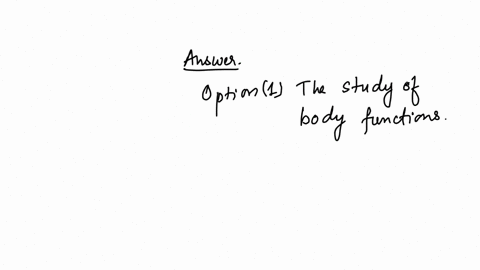 Answer.
Option(1) The study of
body functions.